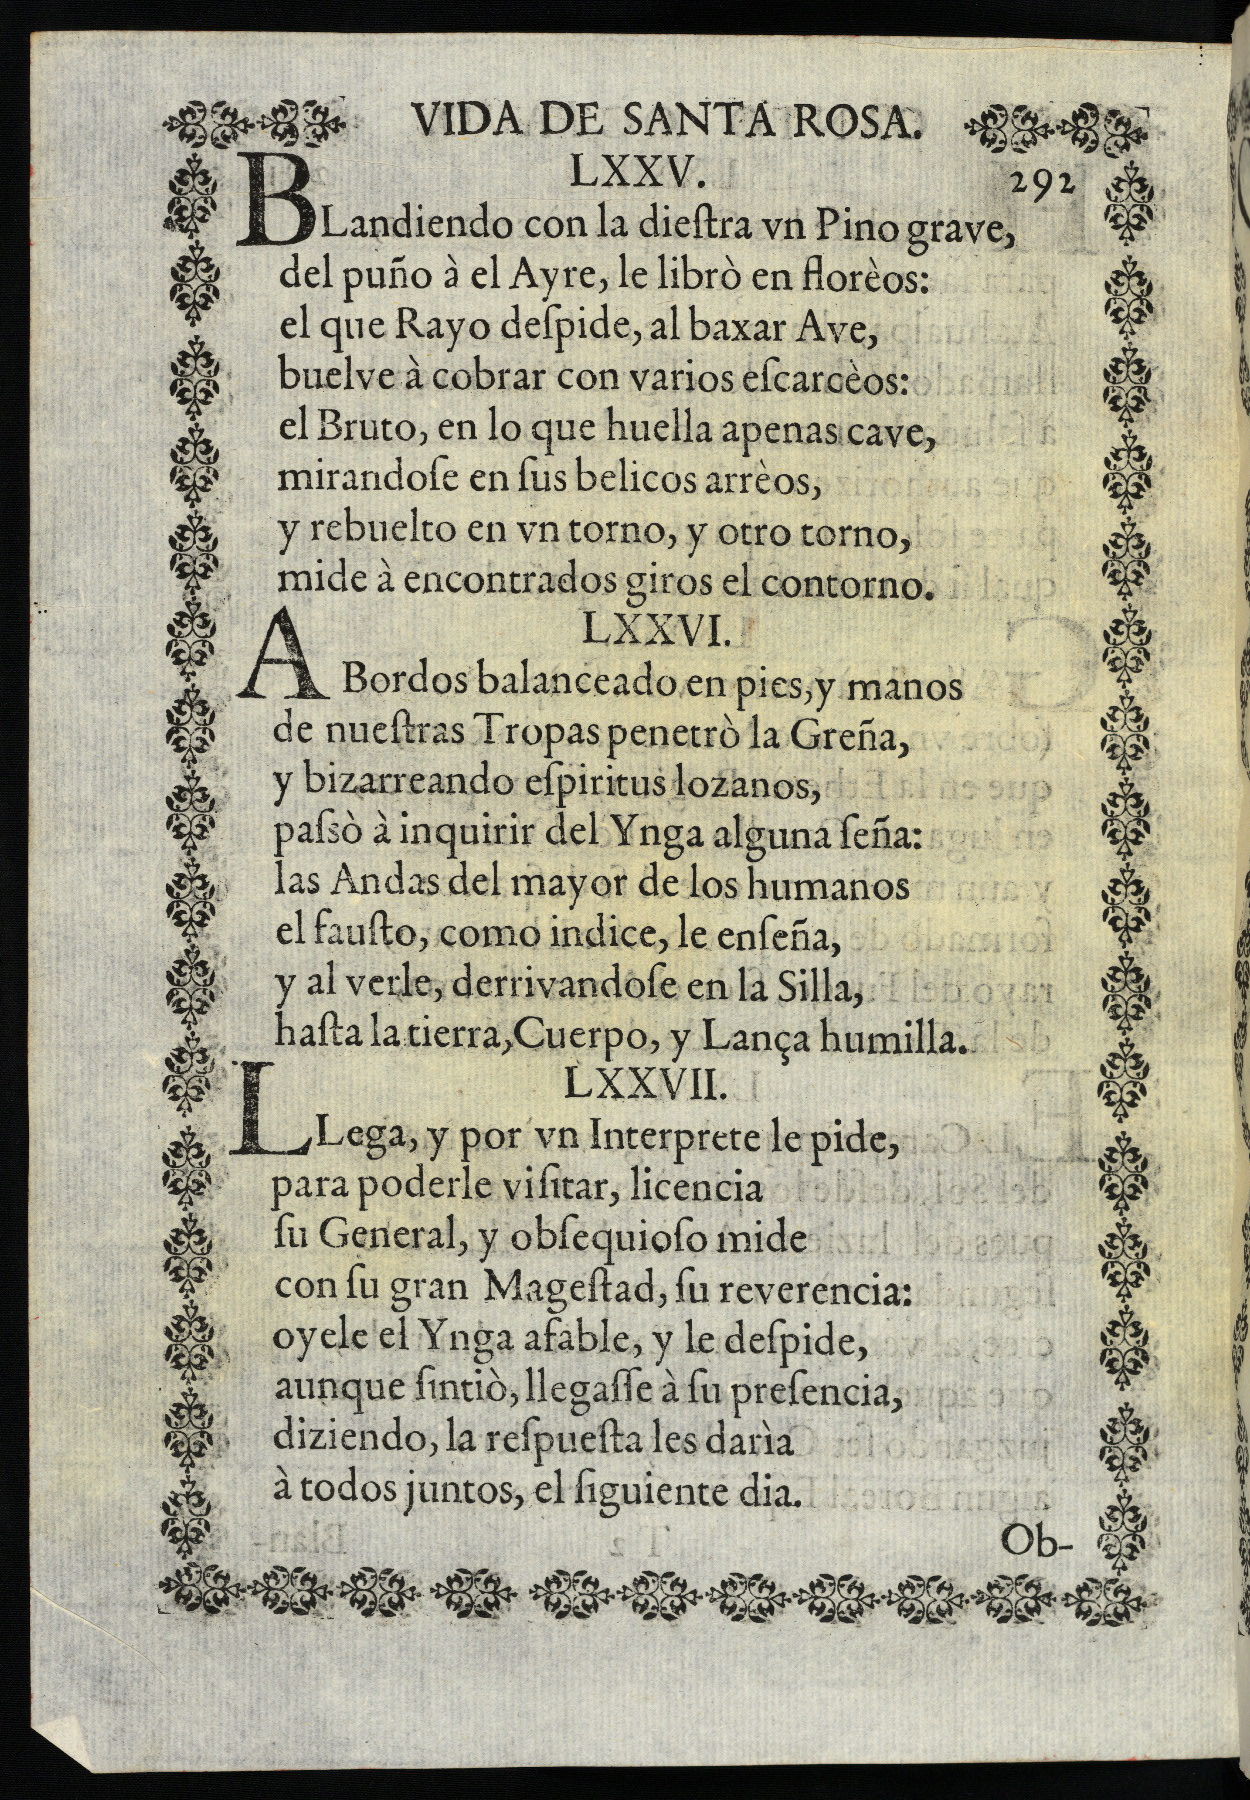 VIDA DE SANTA ROSA.
LXXV.
292
BLandiendo con la dieſtra vn Pino grave,
del puño à el Ayre, le librò en florèos:
el que Rayo deſpide, al baxar Ave,
buelve à cobrar con varios eſcarcèos:
el Bruto, en lo que huella apenas cave,
mirandoſe en ſus belicos arrèos,
y rebuelto en vn torno, y otro torno,
mide à encontrados giros el contorno.
LXXVI.
A Bordos balanceado en pies, y manos
de nueſtras Tropas penetrò la Greña,
y bizarreando eſpiritus lozanos,
paſsò à inquirir del Ynga alguna ſeña:
las Andas del mayor de los humanos
el fauſto, como indice, le enſeña,
y al verle, derrivandoſe en la Silla,
haſta la tierra, Cuerpo, y Lança humilla.
LXXVII.
LLega, y por vn Interprete le pide,
para poderle viſitar, licencia
ſu General, y obſequioſo mide
con ſu gran Mageſtad, ſu reverencia:
oyele el Ynga afable, y le deſpide,
aunque ſintiò, llegaſſe à ſu preſencia,
diziendo, la reſpueſta les darìa
à todos juntos, el ſiguiente dia.
Ob-